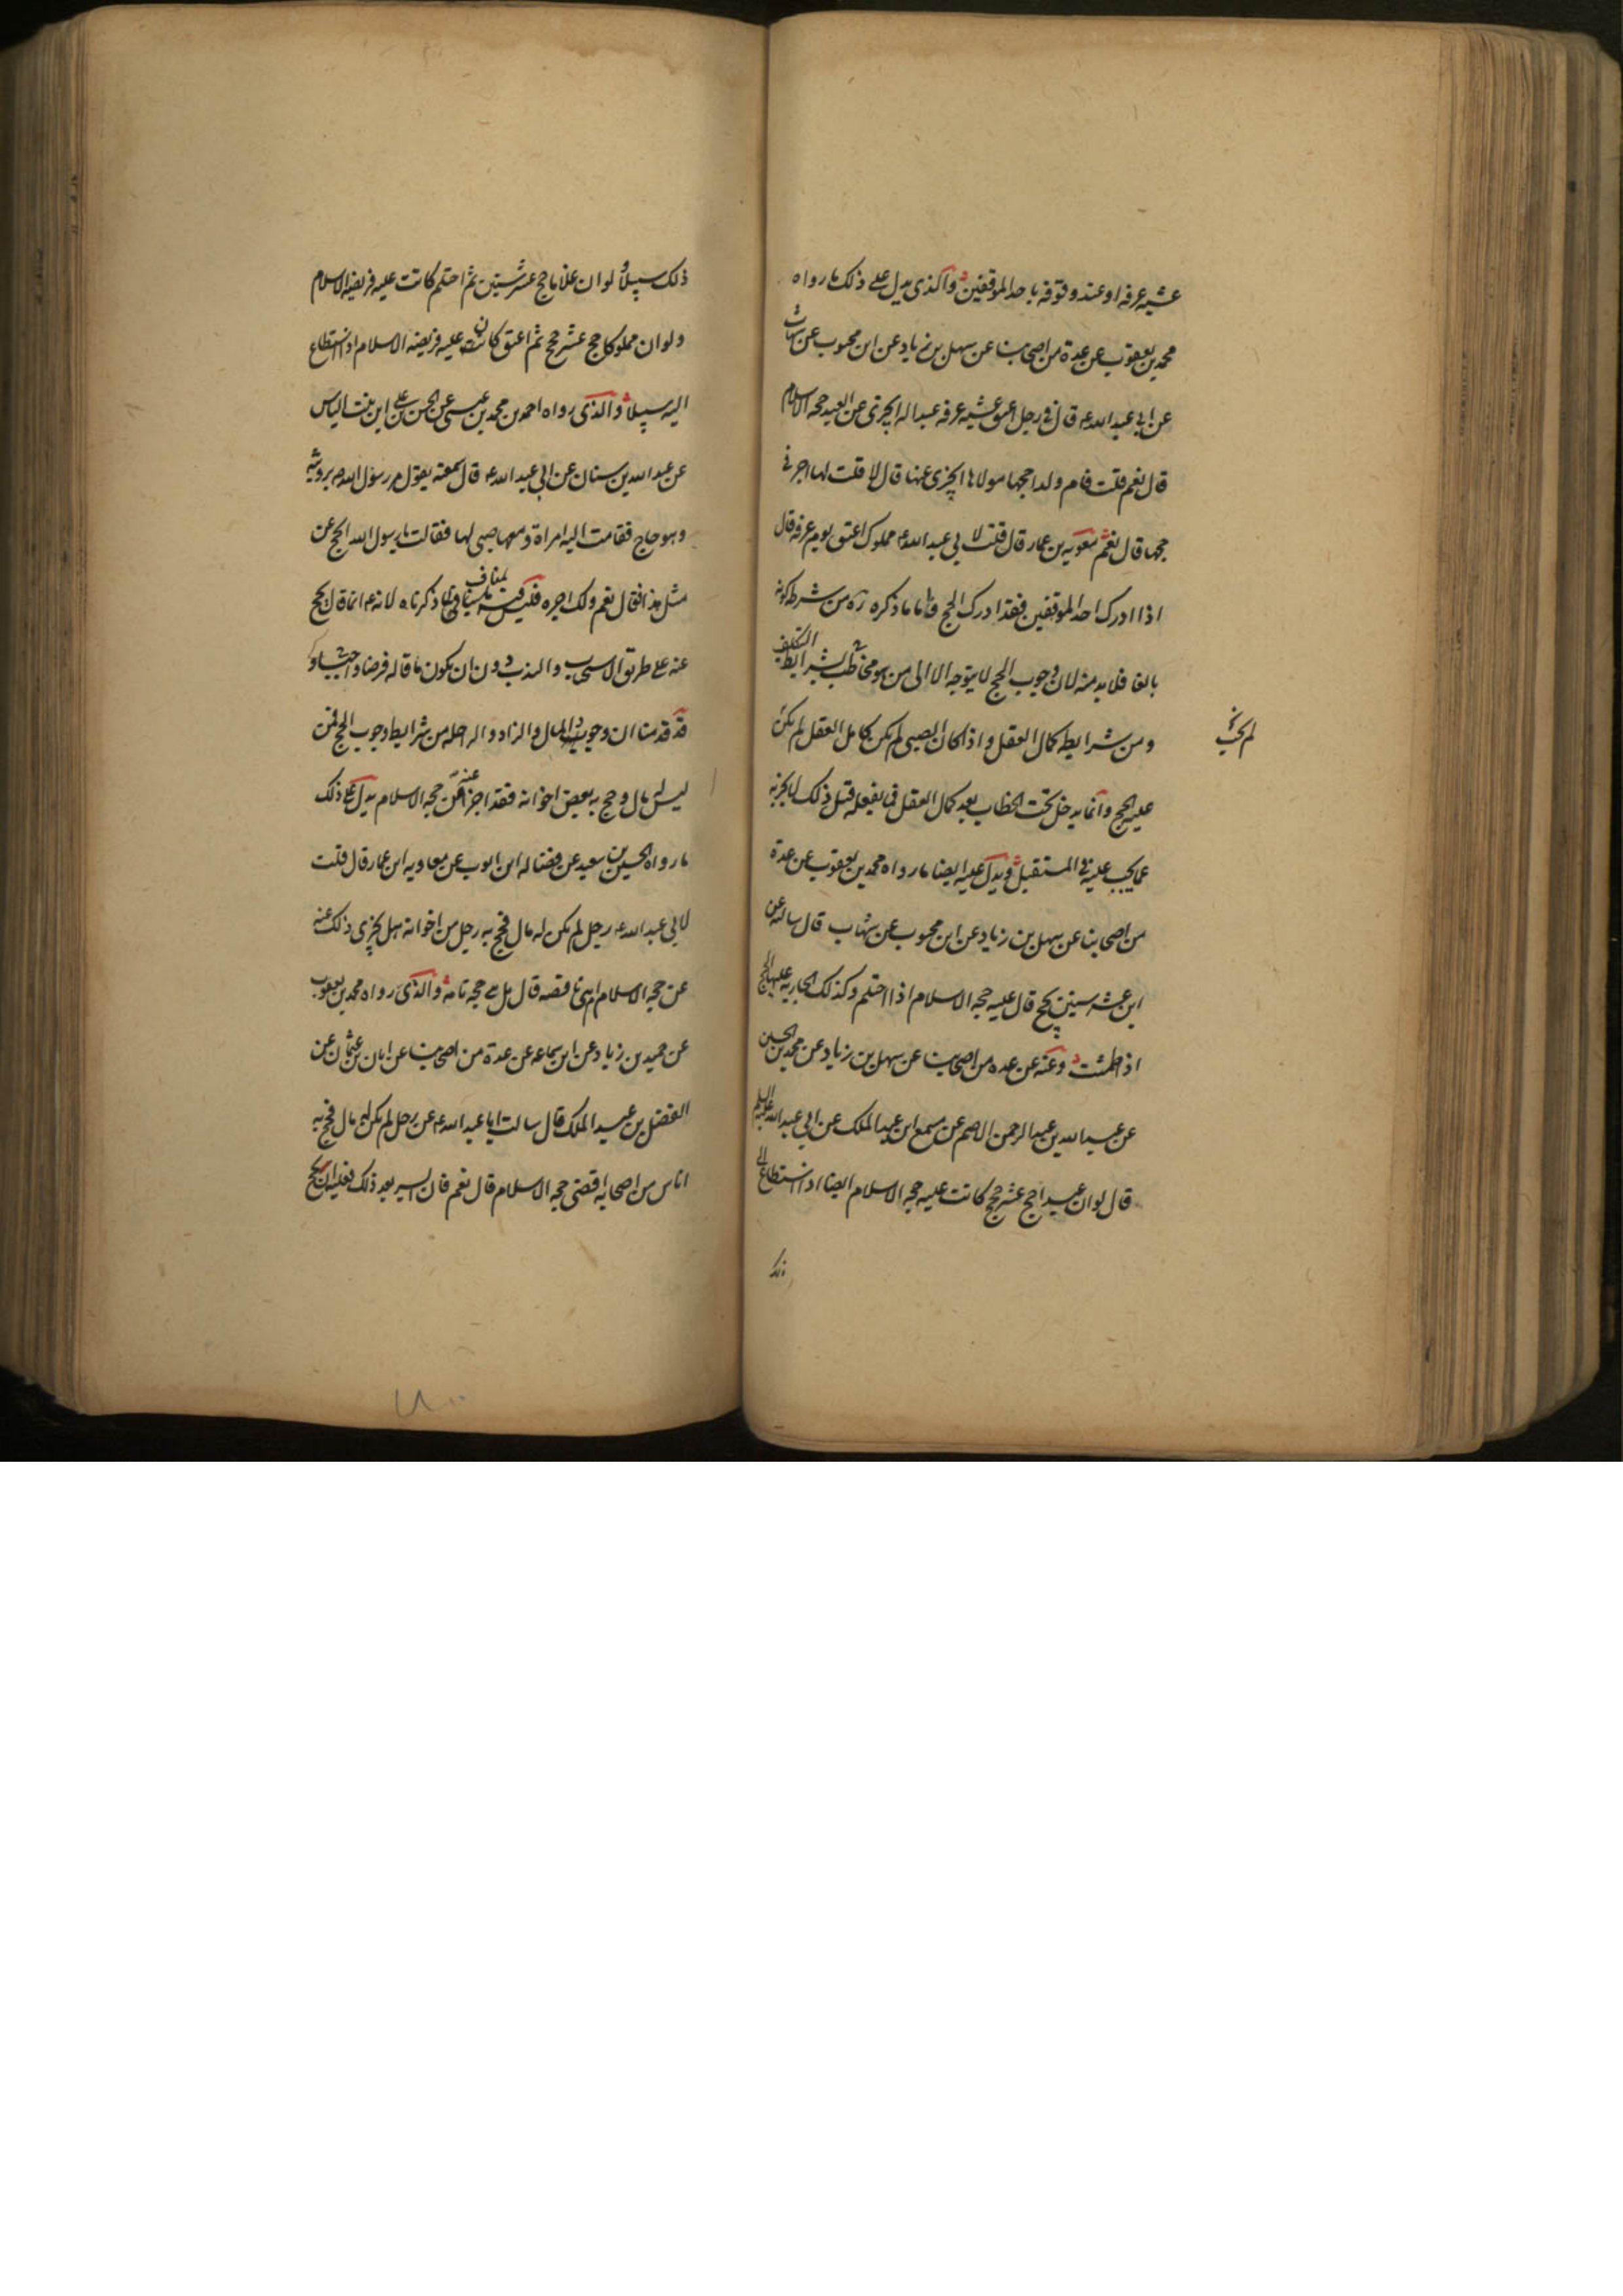 عشيه عرفه او عند وقوفه باحد الموقفين والذى يدل على ذلك ما رواه
محمد بن يعقوب عن عدة من اصحابنا عن سهل بن زياد عن ابن محبوب عن شهاب
عن ابي عبد الله ع قال في رجل اعتق عشيه عرفه عبدا له ايجزى عن العبد حجه الاسلام
قال نعم قلت فام ولد احجها مولاها ايجزى عنها قال لا قلت لها اجر في
حجها قال نعم معويه بن عمار قال قلت لابي عبد الله ع مملوك اعتق يوم عرفه قال
اذا ادرك احد الموقفين فقد ادرك الحج فاما ما ذكره ره من شرط كونه
بالغا فلا بد منه لان وجوب الحج لا يتوجه الا الى من هو مخاطب بشرايط التكليف
ومن شرايطه كمال العقل واذا كان الصبى لم يكن بكامل العقل لم يكن
لم يجب
عليه الحج وانما يدخل تحت الخطاب بعد كمال العقل فما يفعله قبل ذلك لا يجزيه
عما يجب عليه فى المستقبل ويدل عليه ايضا ما رواه محمد بن يعقوب عن عدة
من اصحابنا عن سهل بن زياد عن ابن محبوب عن شهاب قال سالته عن
ابن عشر سنين يحج قال عليه حجه الاسلام اذا احتلم وكذلك الجاريه عليها الحج
اذا طمثت وعنه عن عده من اصحابنا عن سهل بن زياد عن محمد بن الحسين
عن عبد الله بن عبد الرحمن الاصم عن مسمع ابن عبد الملك عن ابي عبد الله عليه السلم
قال لو ان عبدا حج عشر حجج كانت عليه حجه الاسلام ايضا اذا استطاع الى
ذلك
ذلك سبيلا ولو ان غلاما حج عشر سنين ثم احتلم كانت عليه فريضه الاسلام
ولو ان مملوكا حج عشر حجج ثم اعتق كانت عليه فريضه الاسلام اذا استطاع
اليه سبيلا والذى رواه احمد بن محمد بن عيسى عن الحسن بن على ابن بنت الياس
عن عبد الله بن سنان عن ابي عبد الله ع قال سمعته يقول مر رسول الله ص برويثه
وهو حاج فقامت اليه امراة ومعها صبى لها فقالت يا رسول الله ايحج عن
مثل هذا فقال نعم ولك اجره فليس فيه بمناف لما ذكرناه لانه ع انما قال يحج
عنه على طريق الاستحباب والندب دون ان يكون ما قاله فرضا واجبا و
قد قدمنا ان وجود المال والزاد والراحله من شرايط وجوب الحج فمن
ليس له مال وحج به بعض اخوانه فقد اجزا عنه عن حجه الاسلام يدل على ذلك
ما رواه الحسين بن سعيد عن فضاله ابن ايوب عن معاويه ابن عمار قال قلت
لابي عبد الله ع رجل لم يكن له مال فحج به رجل من اخوانه هل يجزى ذلك عنه
عن حجه الاسلام ام هى ناقصه قال بل هى حجه تامه والذى رواه محمد بن يعقوب
عن حميد بن زياد عن ابن سماعه عن عدة من اصحابنا عن ابان بن عثمان عن
الفضل بن عبد الملك قال سالت ابا عبد الله ع عن رجل لم يكن له مال فحج به
اناس من اصحابه اقضى حجه الاسلام قال نعم فان ايسر بعد ذلك فعليه ان يحج